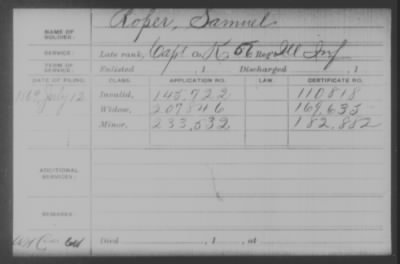 NAME OF SOLDIER: Roper, Samuel
SERVICE: Late rank, Capt Co. K, 56 Reg't Ill Inf
TERM OF SERVICE: Enlisted , 1 Discharged , 1
DATE OF FILING. CLASS. APPLICATION NO. LAW. CERTIFICATE NO.
1869 July 12 Invalid, 145,722 110818
Widow, 207846 169,635
Minor, 233,532 182,882
ADDITIONAL SERVICES:
REMARKS:
Died , 1 , at